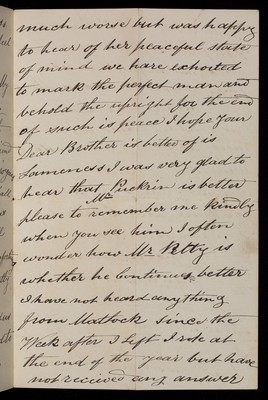 much worse but was happy
to hear of her peaceful state
of mind we hare exhorted
to mark the perfect man and
behold the upright for the end
of such is peace I hope your
Dear Brother is better of is
Lameness I was very glad to
hear that Mr Puckrin is better
please to remember me kindly
when you see him I often
wonder how Mr Petty is
whether he continues better
I have not heard anything
from Matlock since the
Week after I left I rote at
the end of the year but have
not recieved any answer